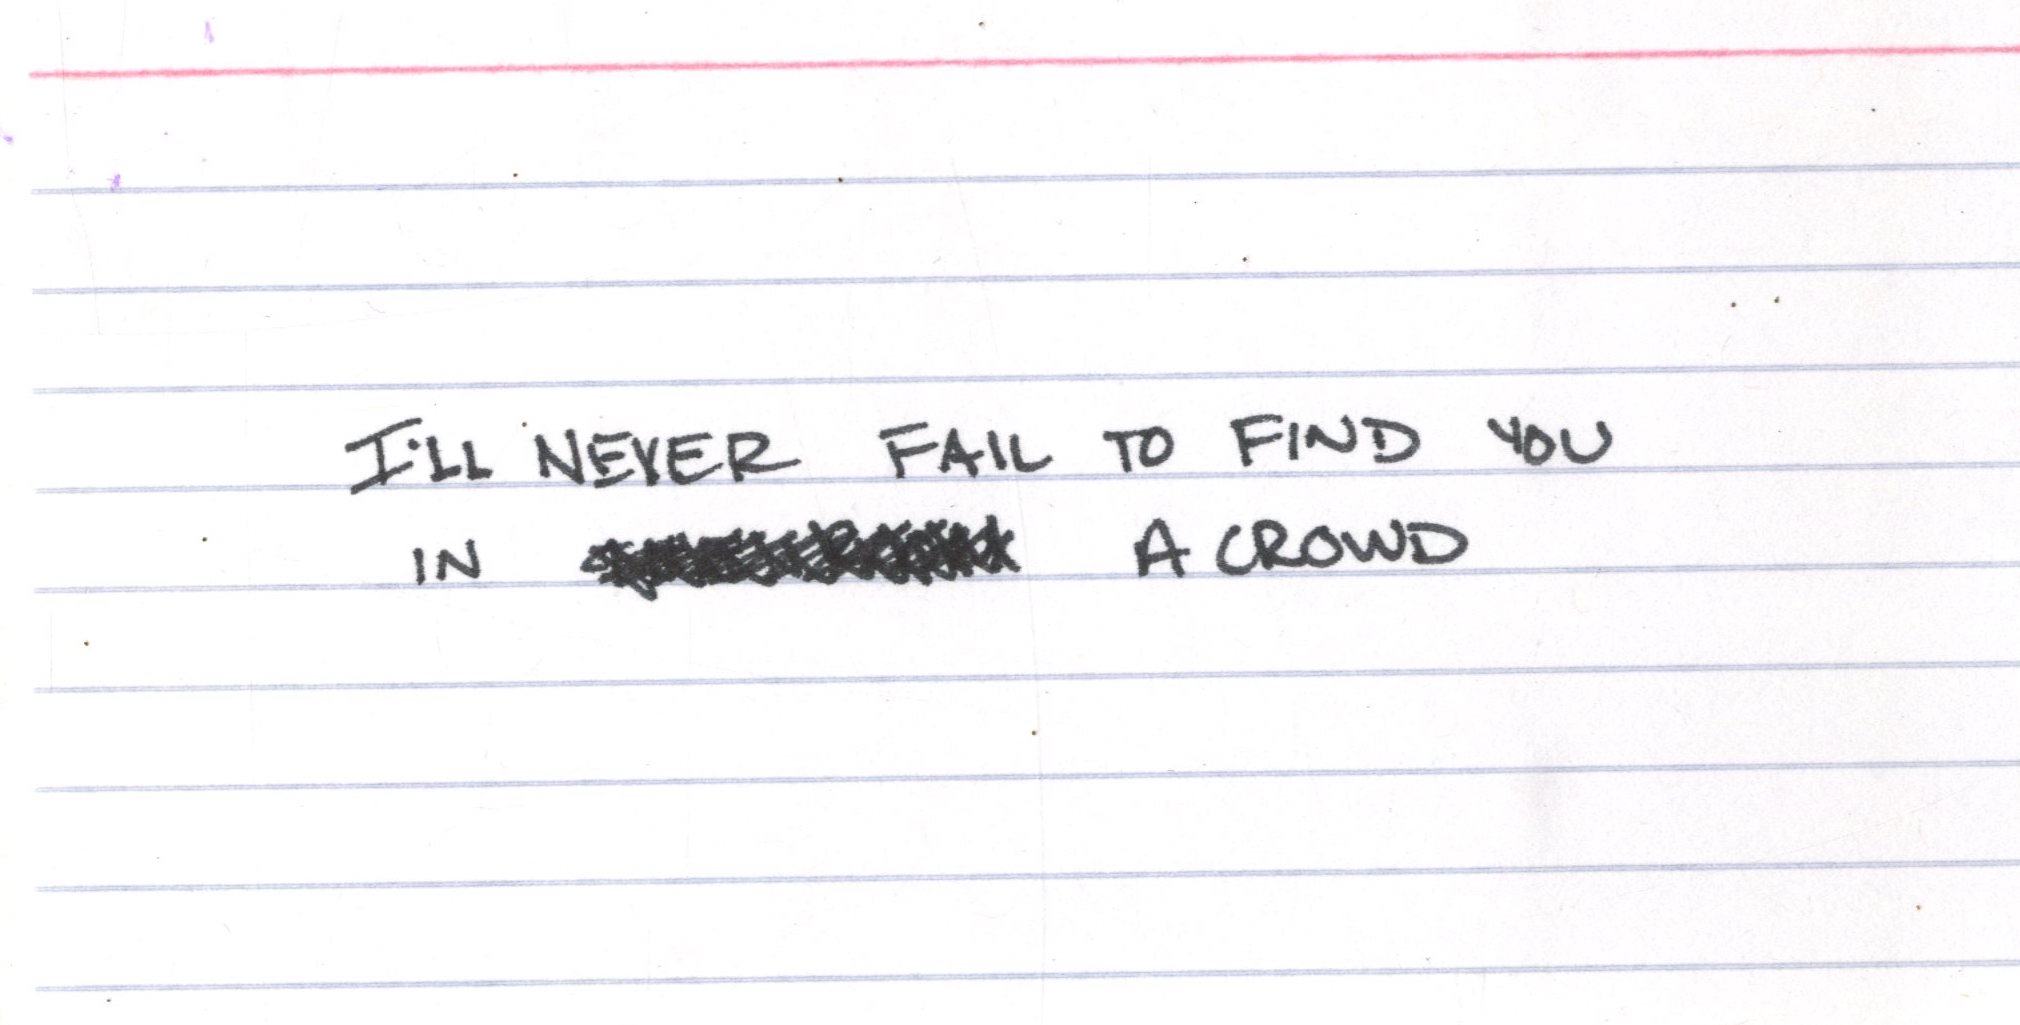 I'LL NEVER FAIL TO FIND YOU
IN A CROWD